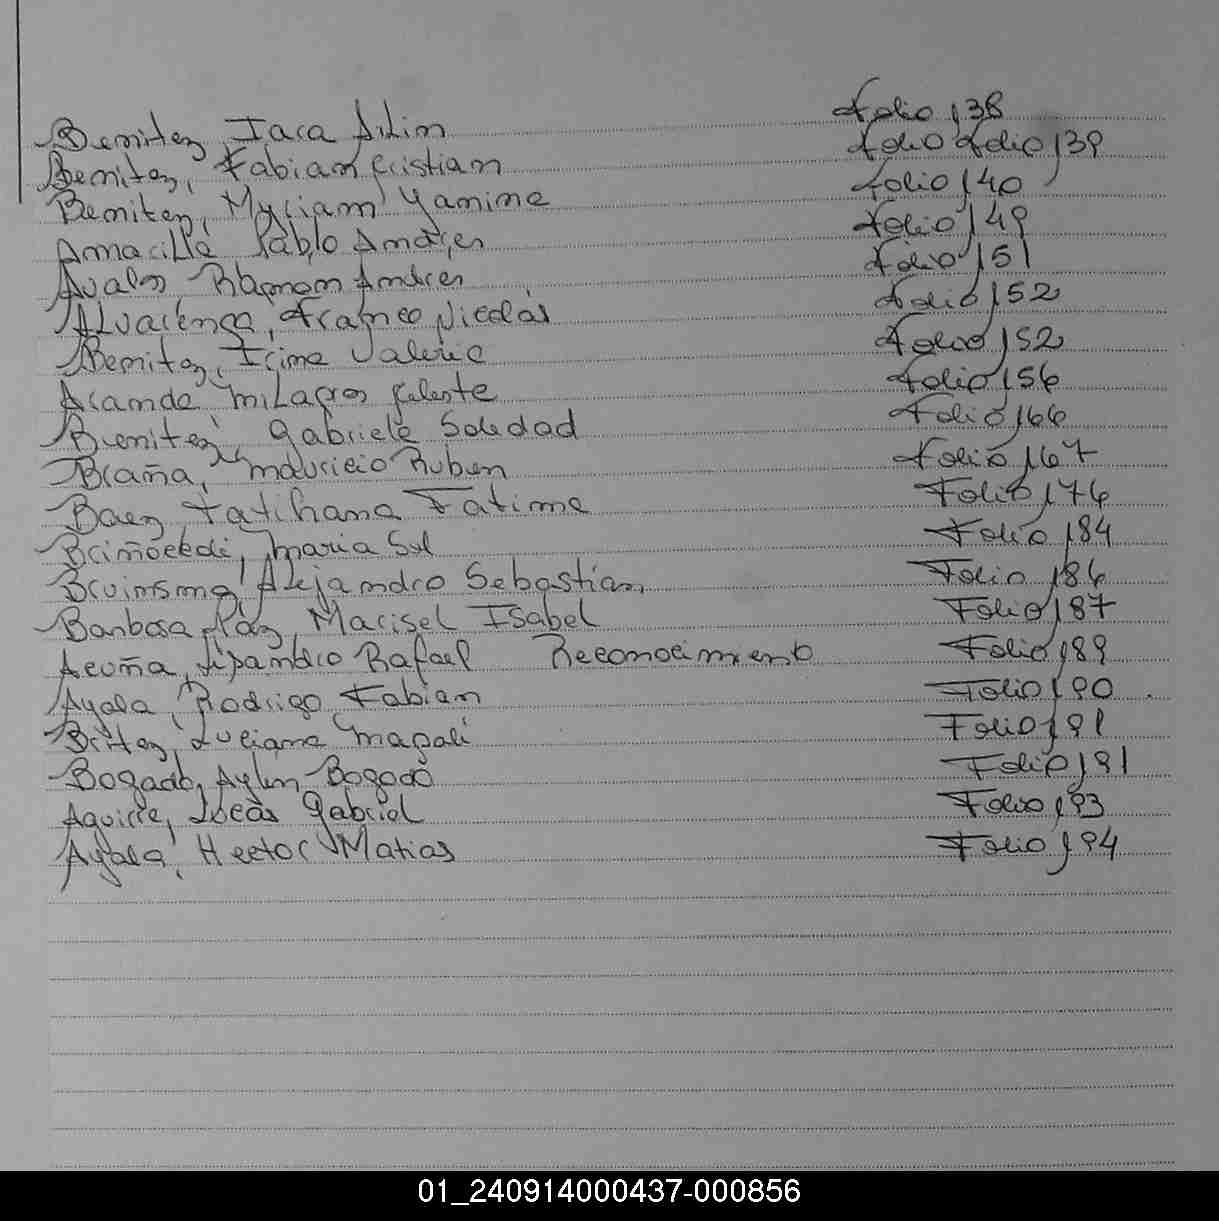 Benitez, Iara Ailin Folio 138
Benitez, Fabian Cristian Folio Folio 139
Benitez, Myriam Yamina Folio 140
Pablo Andres Folio 149
Avalos Ramon Andres Folio 151
Alvarenga, Franco Nicolás Folio 152
Benitez, Irina Valeria Folio 152
Aranda Milagros Celeste Folio 156
Benitez, Gabriela Soledad Folio 166
Braña, Mauricio Ruben Folio 167
Baez Tatihana Fatima Folio 174
Maria Sol Folio 184
Bruinsma Alejandro Sebastian, Folio 186
Barbosa Paz, Marisel Isabel Folio 187
Acuña, Lisandro Rafael Reconocimiento Folio 189
Ayala, Rodrigo Fabian Folio 190
Britez, Luciana Magali Folio 191
Bogado, Aylen Bogado Folio 191
Aguirre, Lucas Gabriel Folio 193
Ayala, Hector Matias Folio 194
01_240914000437-000856